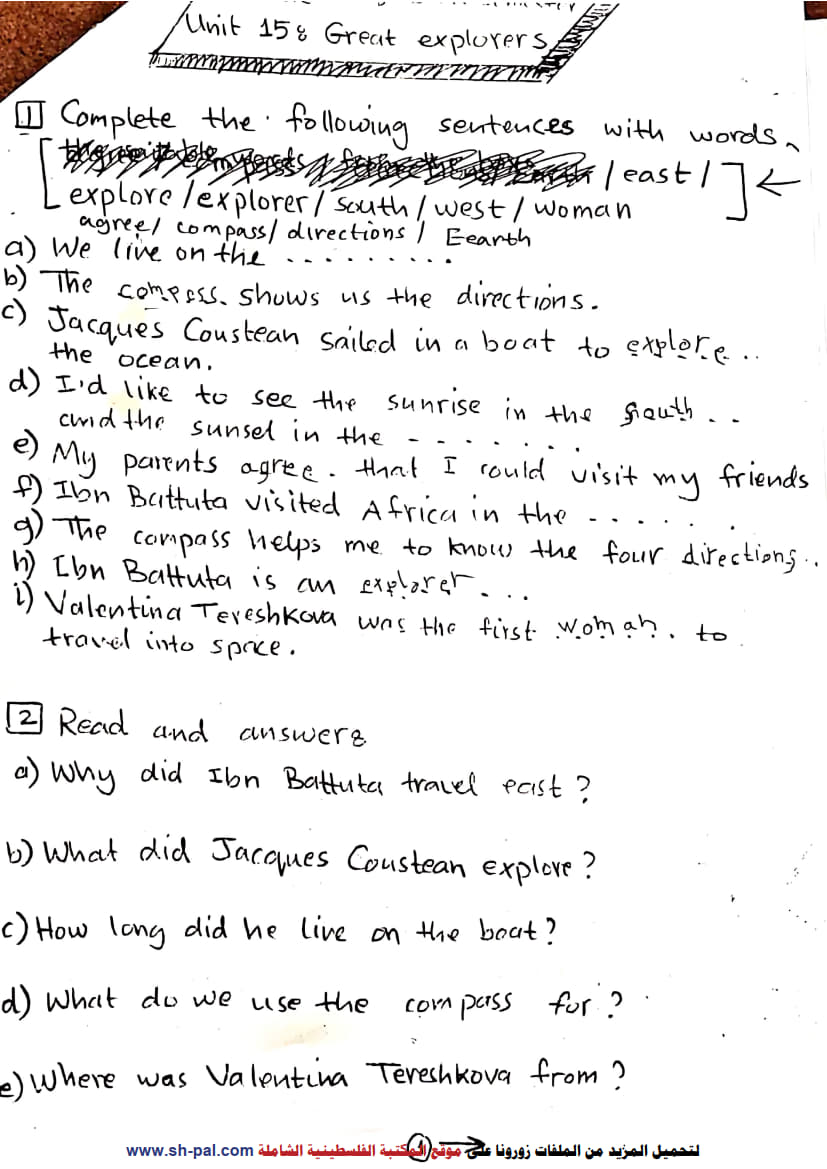 Unit 15: Great explorers
1 Complete the following sentences with words
[ / east / ] ←
explore / explorer / south / west / woman
agree / compass / directions / Eearth
a) We live on the .........
b) The compass. shows us the directions.
c) Jacques Coustean sailed in a boat to explore..
the ocean.
d) I'd like to see the sunrise in the south ..
and the sunset in the ........
e) My parents agree. that I could visit my friends
f) Ibn Battuta visited Africa in the ......
g) The compass helps me to know the four directions..
h) Ibn Battuta is an explorer....
i) Valentina Tereshkova was the first woman. to
travel into space.
2 Read and answer:
a) Why did Ibn Battuta travel east?
b) What did Jacques Coustean explore?
c) How long did he live on the boat?
d) What do we use the compass for?
e) Where was Valentina Tereshkova from?
1
لتحميل المزيد من الملفات زورونا على موقع المكتبة الفلسطينية الشاملة www.sh-pal.com